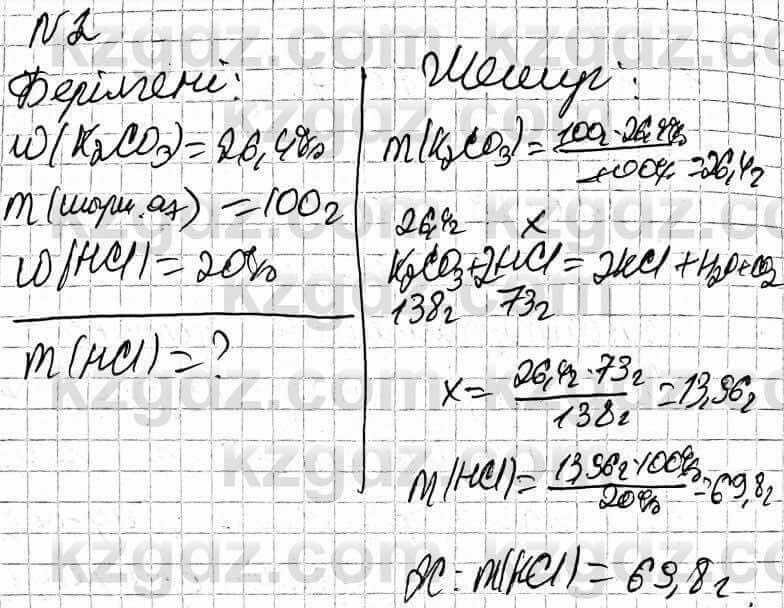 N2
Берілгені:
w(K₂CO₃)=26,4%
m(шори.аз)=100г
w(HCl)=20%
m(HCl)=?
Шешуі:
m(K₂CO₃)=100г·26,4%/100%=26,4г
26,4г x
K₂CO₃+2HCl=2KCl+H₂O+CO₂
138г 73г
x=26,4г·73г/138г=13,96г
m(HCl)=13,96г·100%/20%=69,8г
Ж: m(HCl)=69,8г.
kzgdz.com